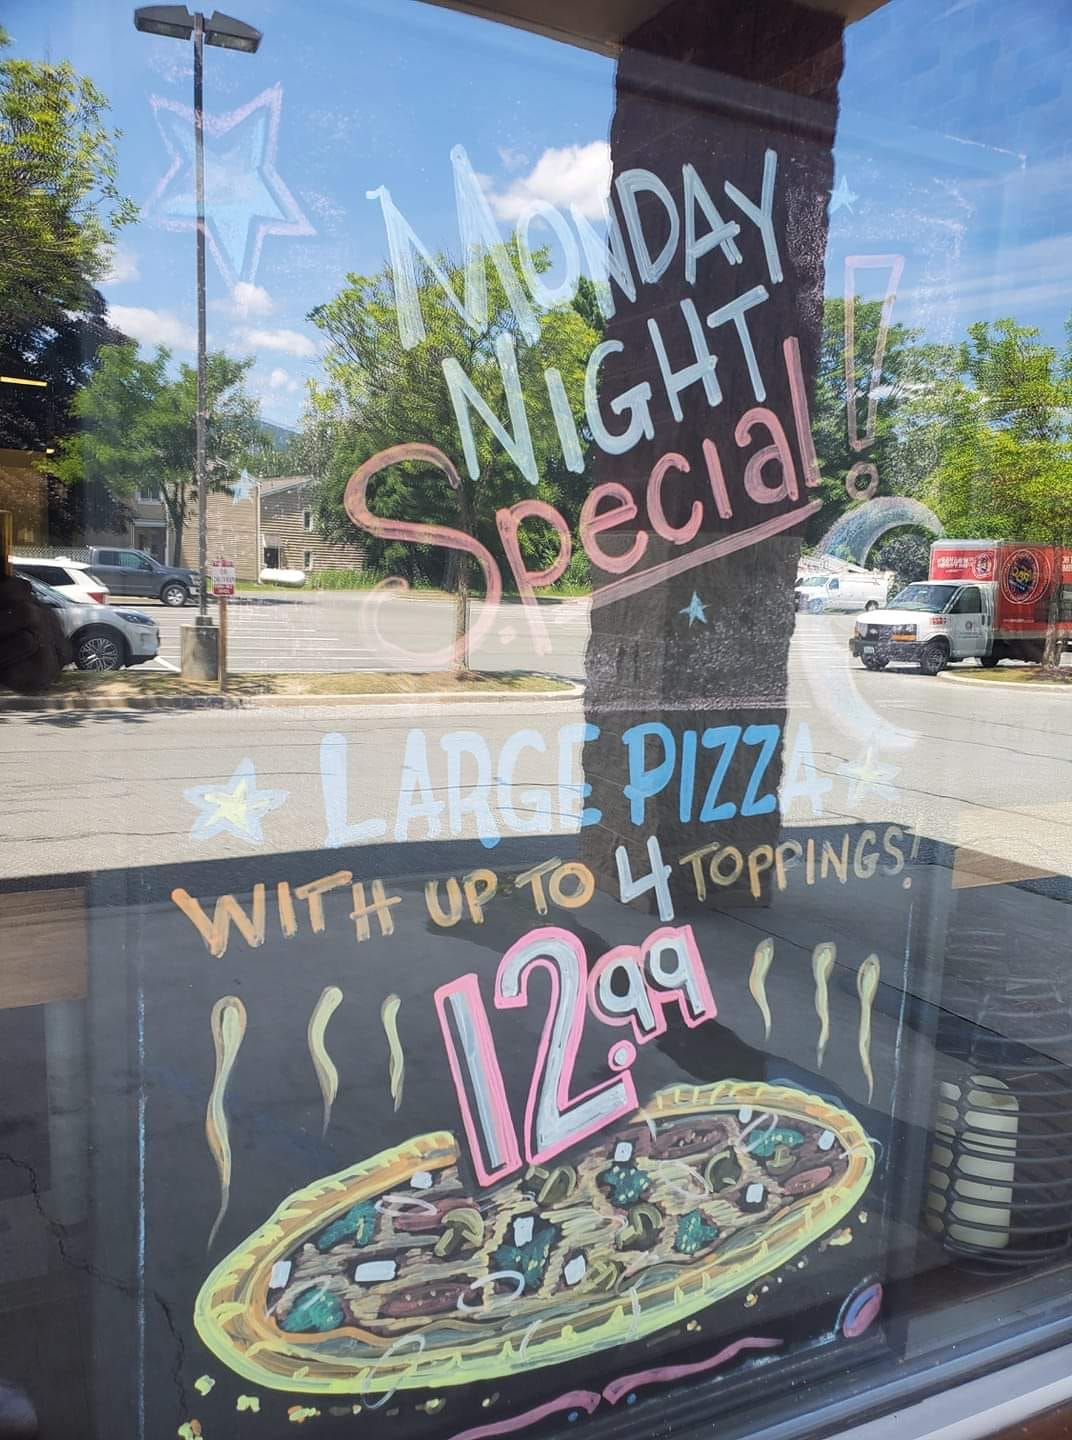 MONDAY
NIGHT
Special!
LARGE PIZZA
WITH UP TO 4 TOPPINGS!
12.99